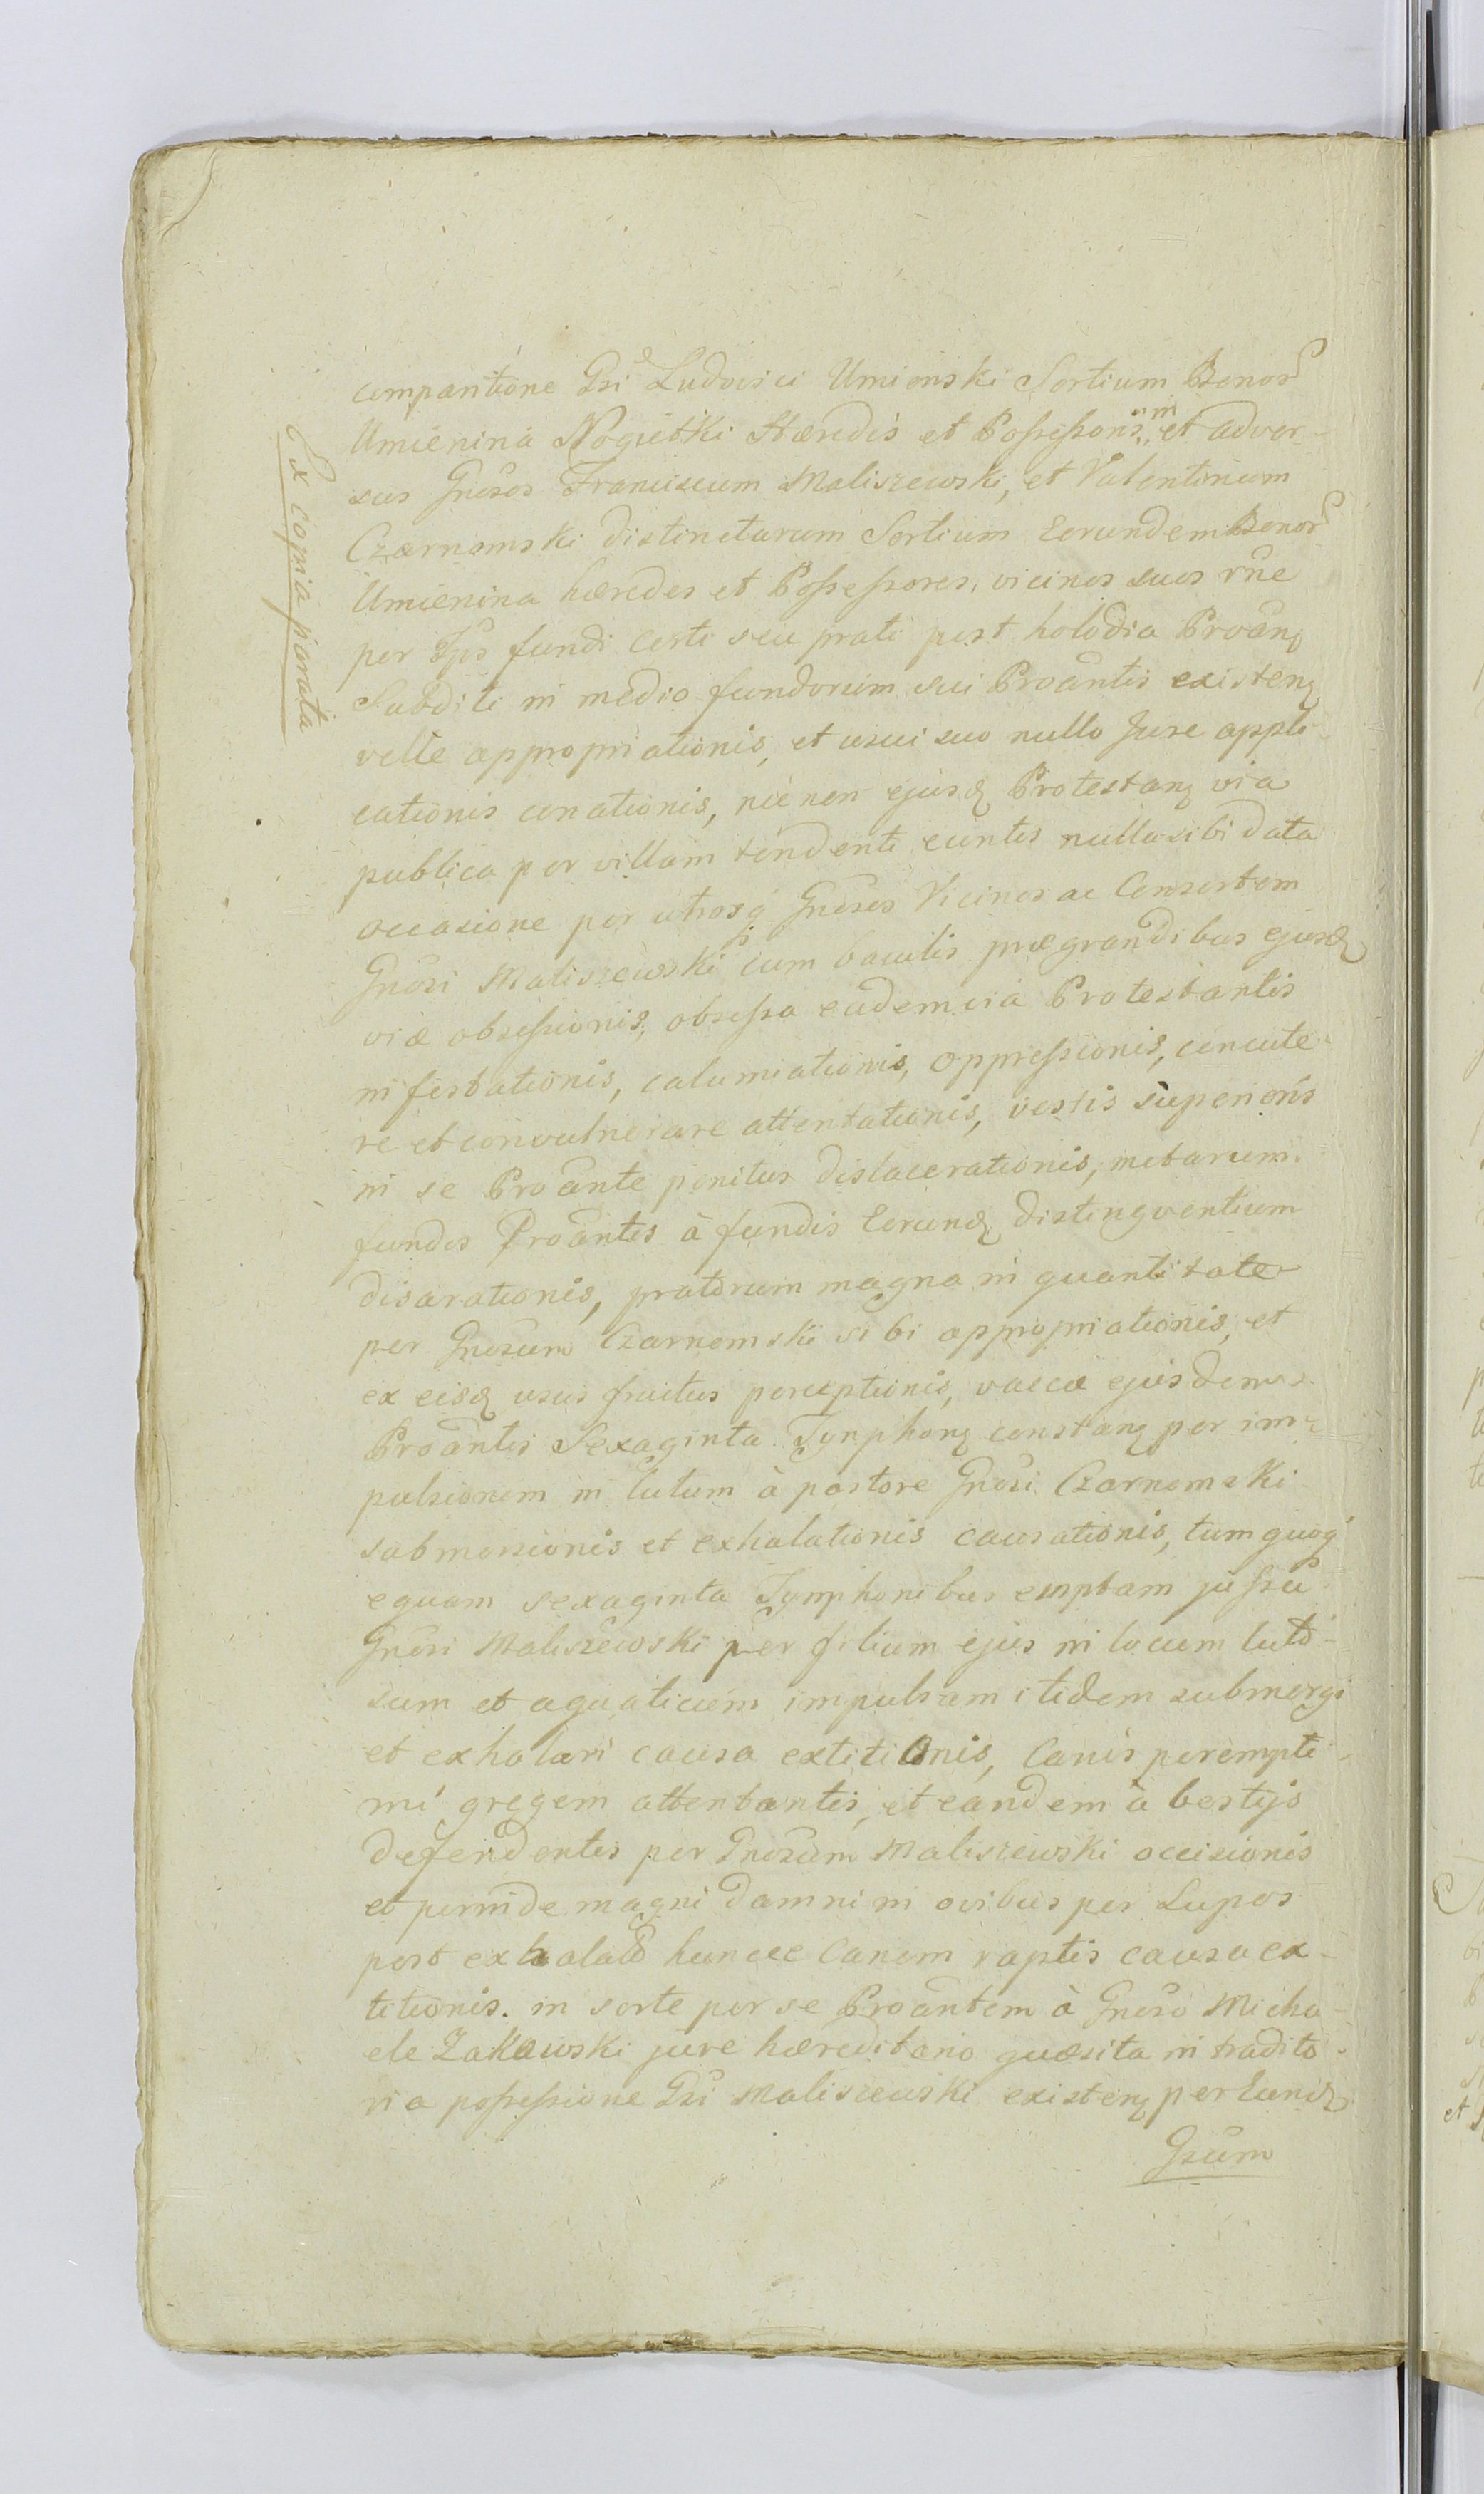 comparitione Gsi Ludovici Umienski Sortium Bonor
Umienina Nogietki Hæredis et Possessoris in et adver-
sus Gnosos Franciscum Maliszewski, et Valentinum
Czarnomski distinctarum Sortium Eorundem Bonor
Umienina hæredes et Possessores, vicinos suos rñe
per Ipsos fundi certi seu prati post holodia Proanq
Subditi in medio fundorum sui Proantis existenq
velle appropriationis, et usui suo nullo Jure appli-
cationis conationis, nec non ejusq Protestanq via
publica per villam tendenti euntis nulla sibi data
occasione per utrosq Gnosos Vicinos ac Consortem
Gnosi Maliszewski cum baculis prægrandibus ejusq
viæ obsessionis, obsessa eadem via Protestantis
infestationis, calumiationis, oppressionis, concute-
re et convulnerare attentationis, vestis superioris
in se Proante penitus dislacerationis, metarum
fundos Proantis à fundis Eorunq distingventium
disarationis, pratorum magna in quantitate
per Gnosum Czarnomski sibi appropriationis, et
ex eisq usus fructus perceptionis, vaccæ ejusdem
Proantis Sexaginta Tynphonq constanq per im-
pulsionem in lutum à pastore Gnosi Czarnomski
submersionis et exhalationis causationis, tum quoq
equam sexaginta Tymphonibus emptam jussu
Gnosi Maliszewski per filium ejus in locum luto-
sum et aquaticum impulsam itidem submergi
et exhalari causa extitionis, Canis perempti-
mi gregem attentantis, et eandem à bestijs
defendentis per Gnosum Maliszewski occisionis
et perinde magni damni in ovibus per Lupos
post exhalatu huncce Canem raptis causa ex-
titionis. in sorte per se Proantem à Gnoso Micha-
ele Zakowski jure hæreditario quæsita in tradito-
ria possessione Gsi Maliszewski existenq per Eunq
Gsum
Ex copia parata